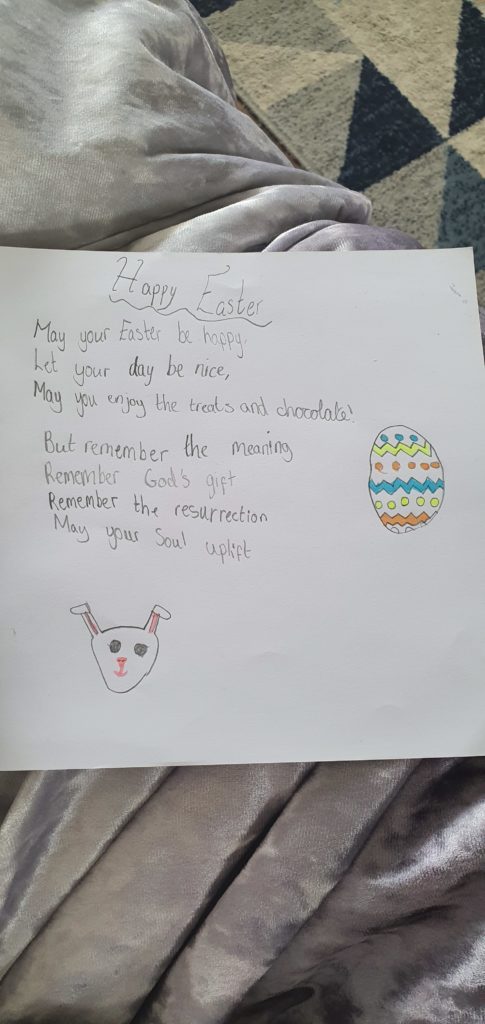 Happy Easter
May your Easter be happy,
Let your day be nice,
May you enjoy the treats and chocolate!
But remember the meaning
Remember God's gift
Remember the resurrection
May your Soul uplift